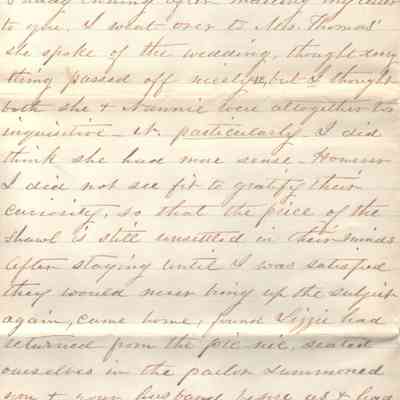 evening after mailing my letter
to you. I went over to Mrs. Thomas'
she spoke of the wedding, thought every
thing passed off nicely, but I thought
both she & Nannie were altogether too
inquisitive - N. particularly. I did
think she had more sense - However
I did not see fit to gratify their
curiosity, so that the price of the
shawl is still unsettled in their minds
After staying until I was satisfied
they would never bring up the subject
again, came home, found Lizzie had
returned from the pic nic, seated
ourselves in the parlor summoned
you & your husband before us & had